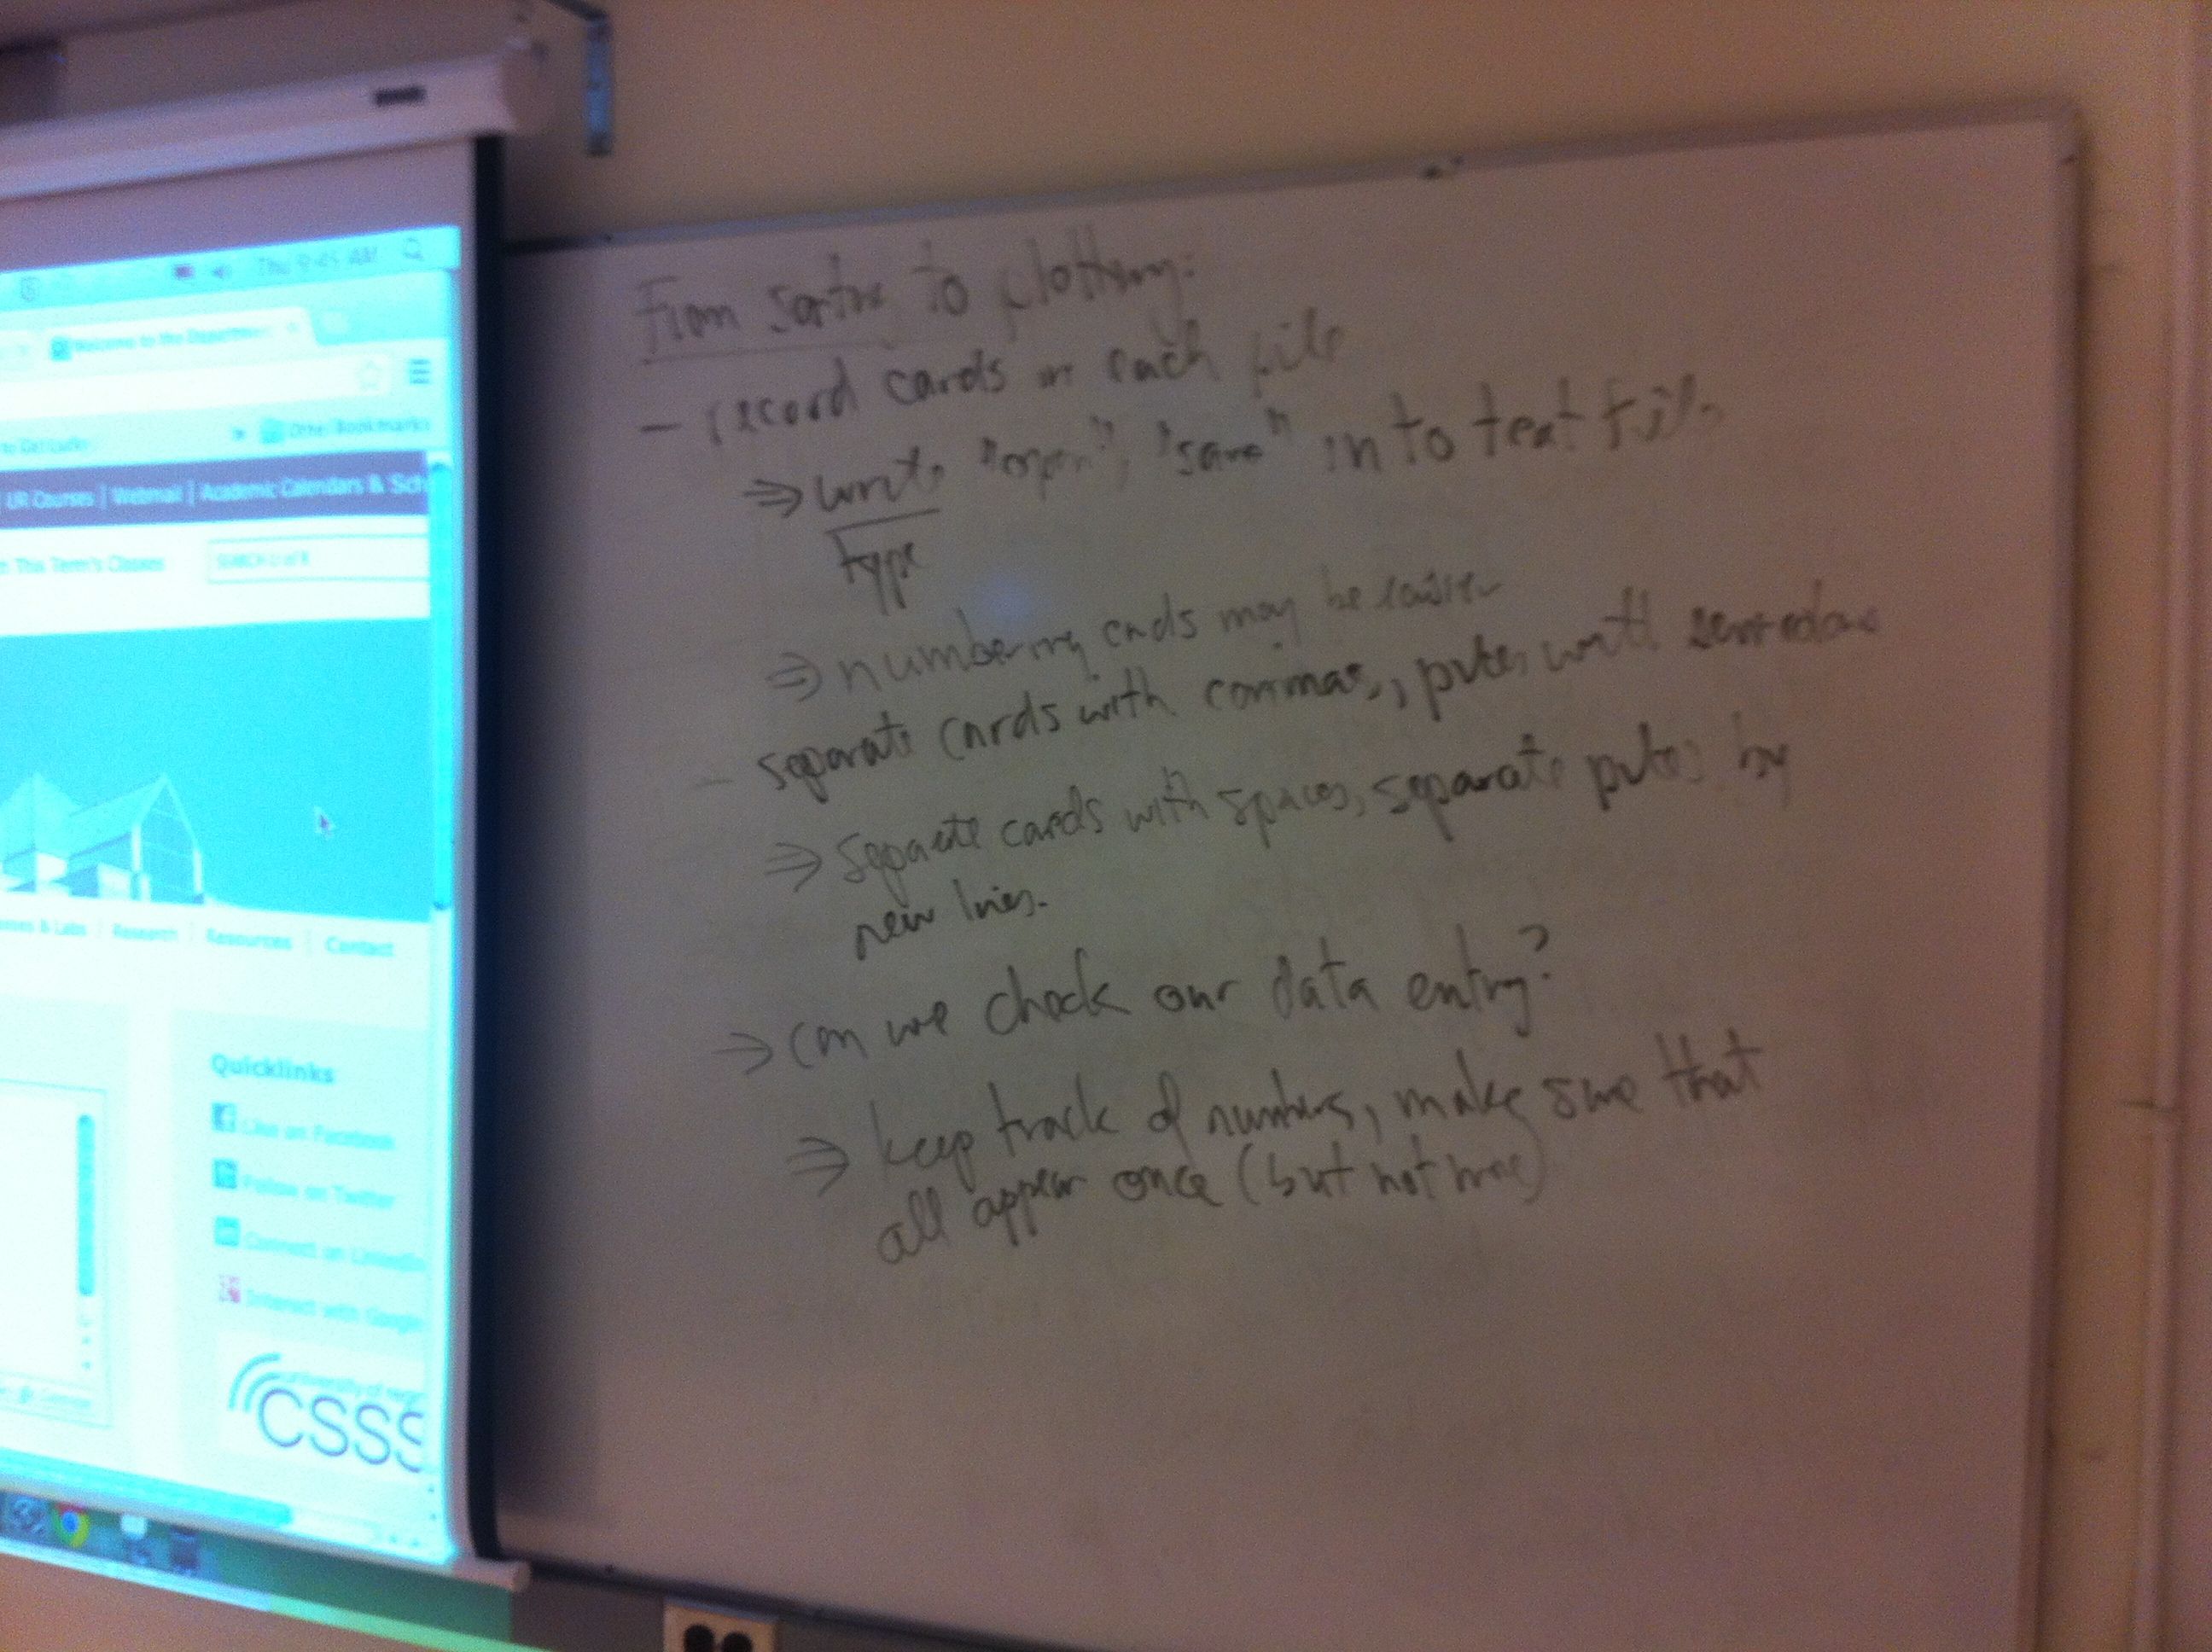 Thu 9:45 AM
Welcome to the Departmen
Other Bookmarks
to Get Lucky
UR Courses | Webmail | Academic Calendars & Sch
n This Term's Classes
SEARCH U of R
& Labs | Research | Resources | Contact
Quicklinks
Like on Facebook
Follow on Twitter
Connect on LinkedIn
Interact with Google
university of regi
CSSS
From sorting to plotting:
- record cards in each pile
⇒ write "open", "save" into text file
type
⇒ numbering cards may be easier
- separate cards with commas, piles with semicolons
⇒ separate cards with spaces, separate piles by
new lines.
→ can we check our data entry?
⇒ keep track of numbers, make sure that
all appear once (but not more)